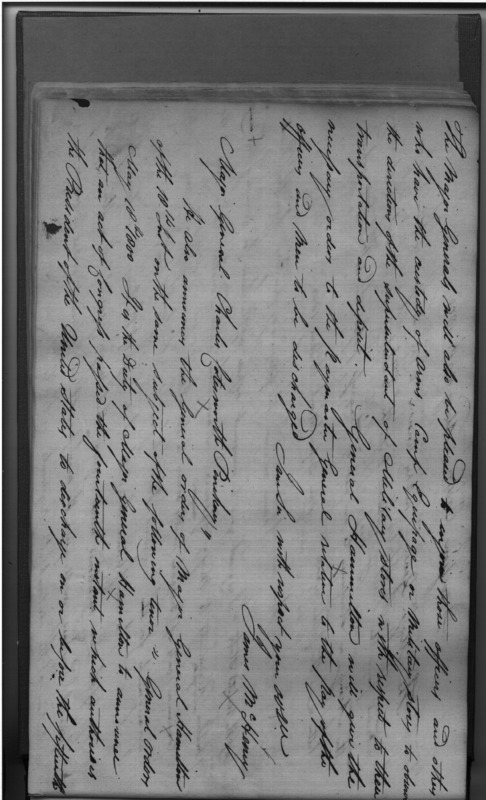 The Major Generals will also be pleased to enjoin those officers and others
who have the custody of arms Camp Equipage or Military stores to observe
the direction of the superintendant of Military stores with respect to their
transportation and deposit. General Hamilton will give the
necessary orders to the Paymaster General relative to the pay of the
officers and Men to be discharged I am Sir with respect your
James McHenry
Major General Charles Cotesworth Pinckney"
He also announces the General orders of Major General Hamilton
of the on the same subject of the following tenor "General Orders
May 18th 1800 It is the Duty of Major General Hamilton to announce
that an act of Congress passed the fourteenth instant which authorises
the President of the United States to discharge on or before the fifteenth